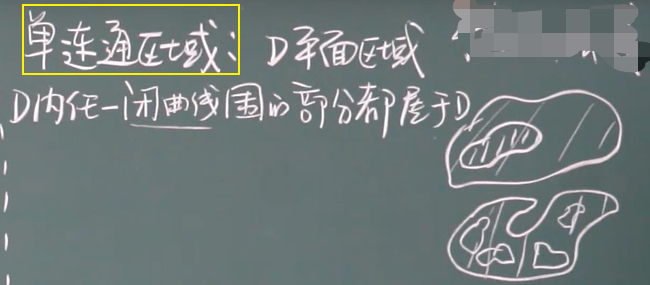 单连通区域: D平面区域
D内任一闭曲线围的部分都属于D